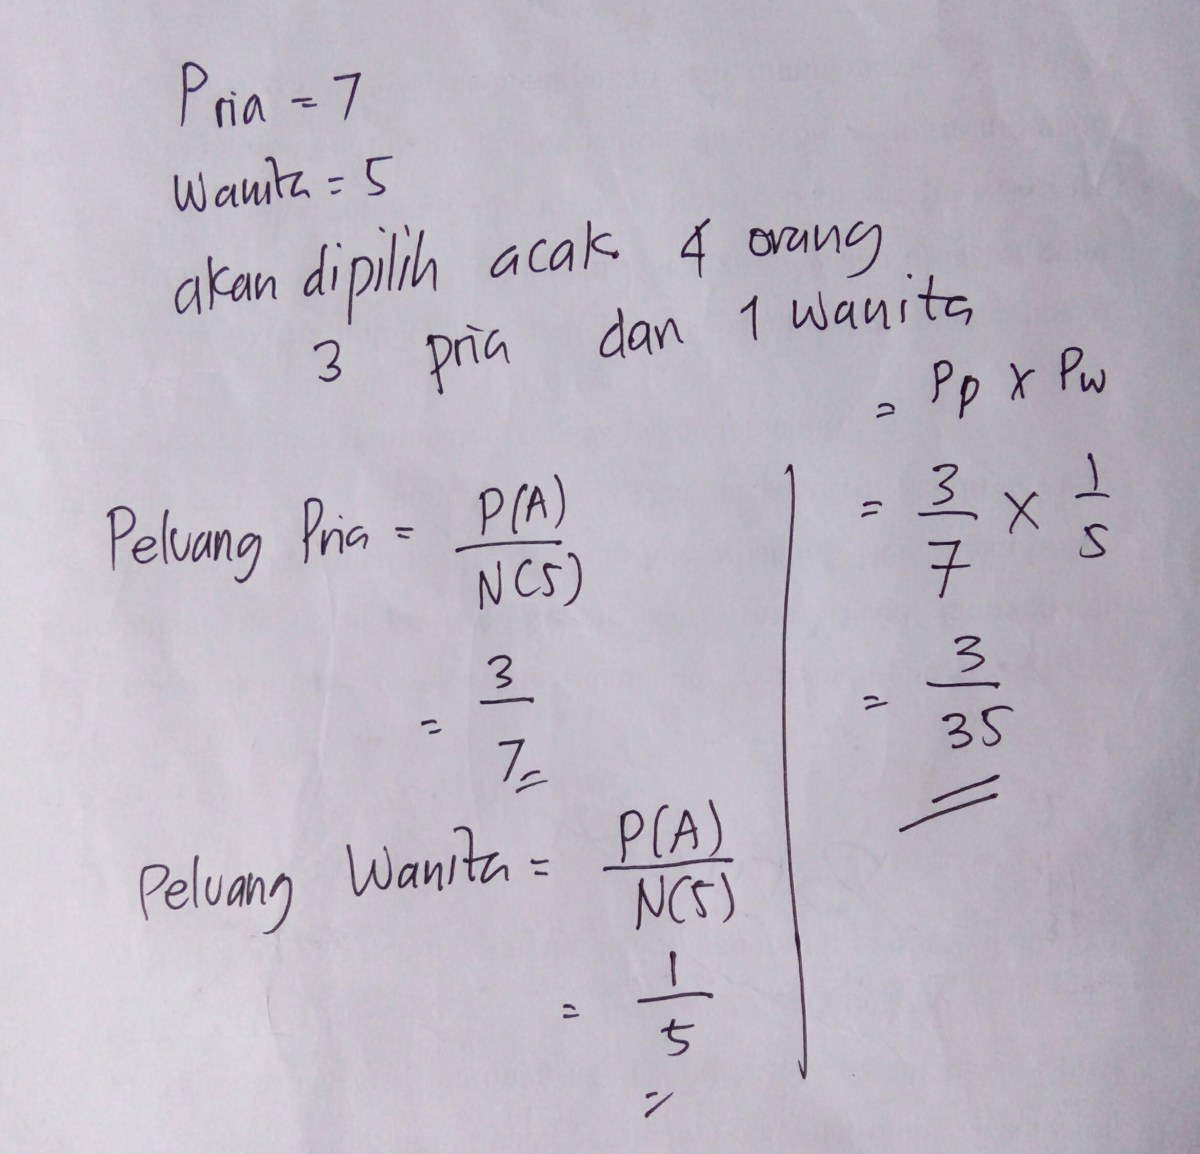 Pria = 7
Wanita = 5
akan dipilih acak 4 orang
3 pria dan 1 wanita
Peluang Pria = P(A) / N(S)
= 3 / 7
Peluang Wanita = P(A) / N(S)
= 1 / 5
= Pp x Pw
= 3 / 7 x 1 / 5
= 3 / 35